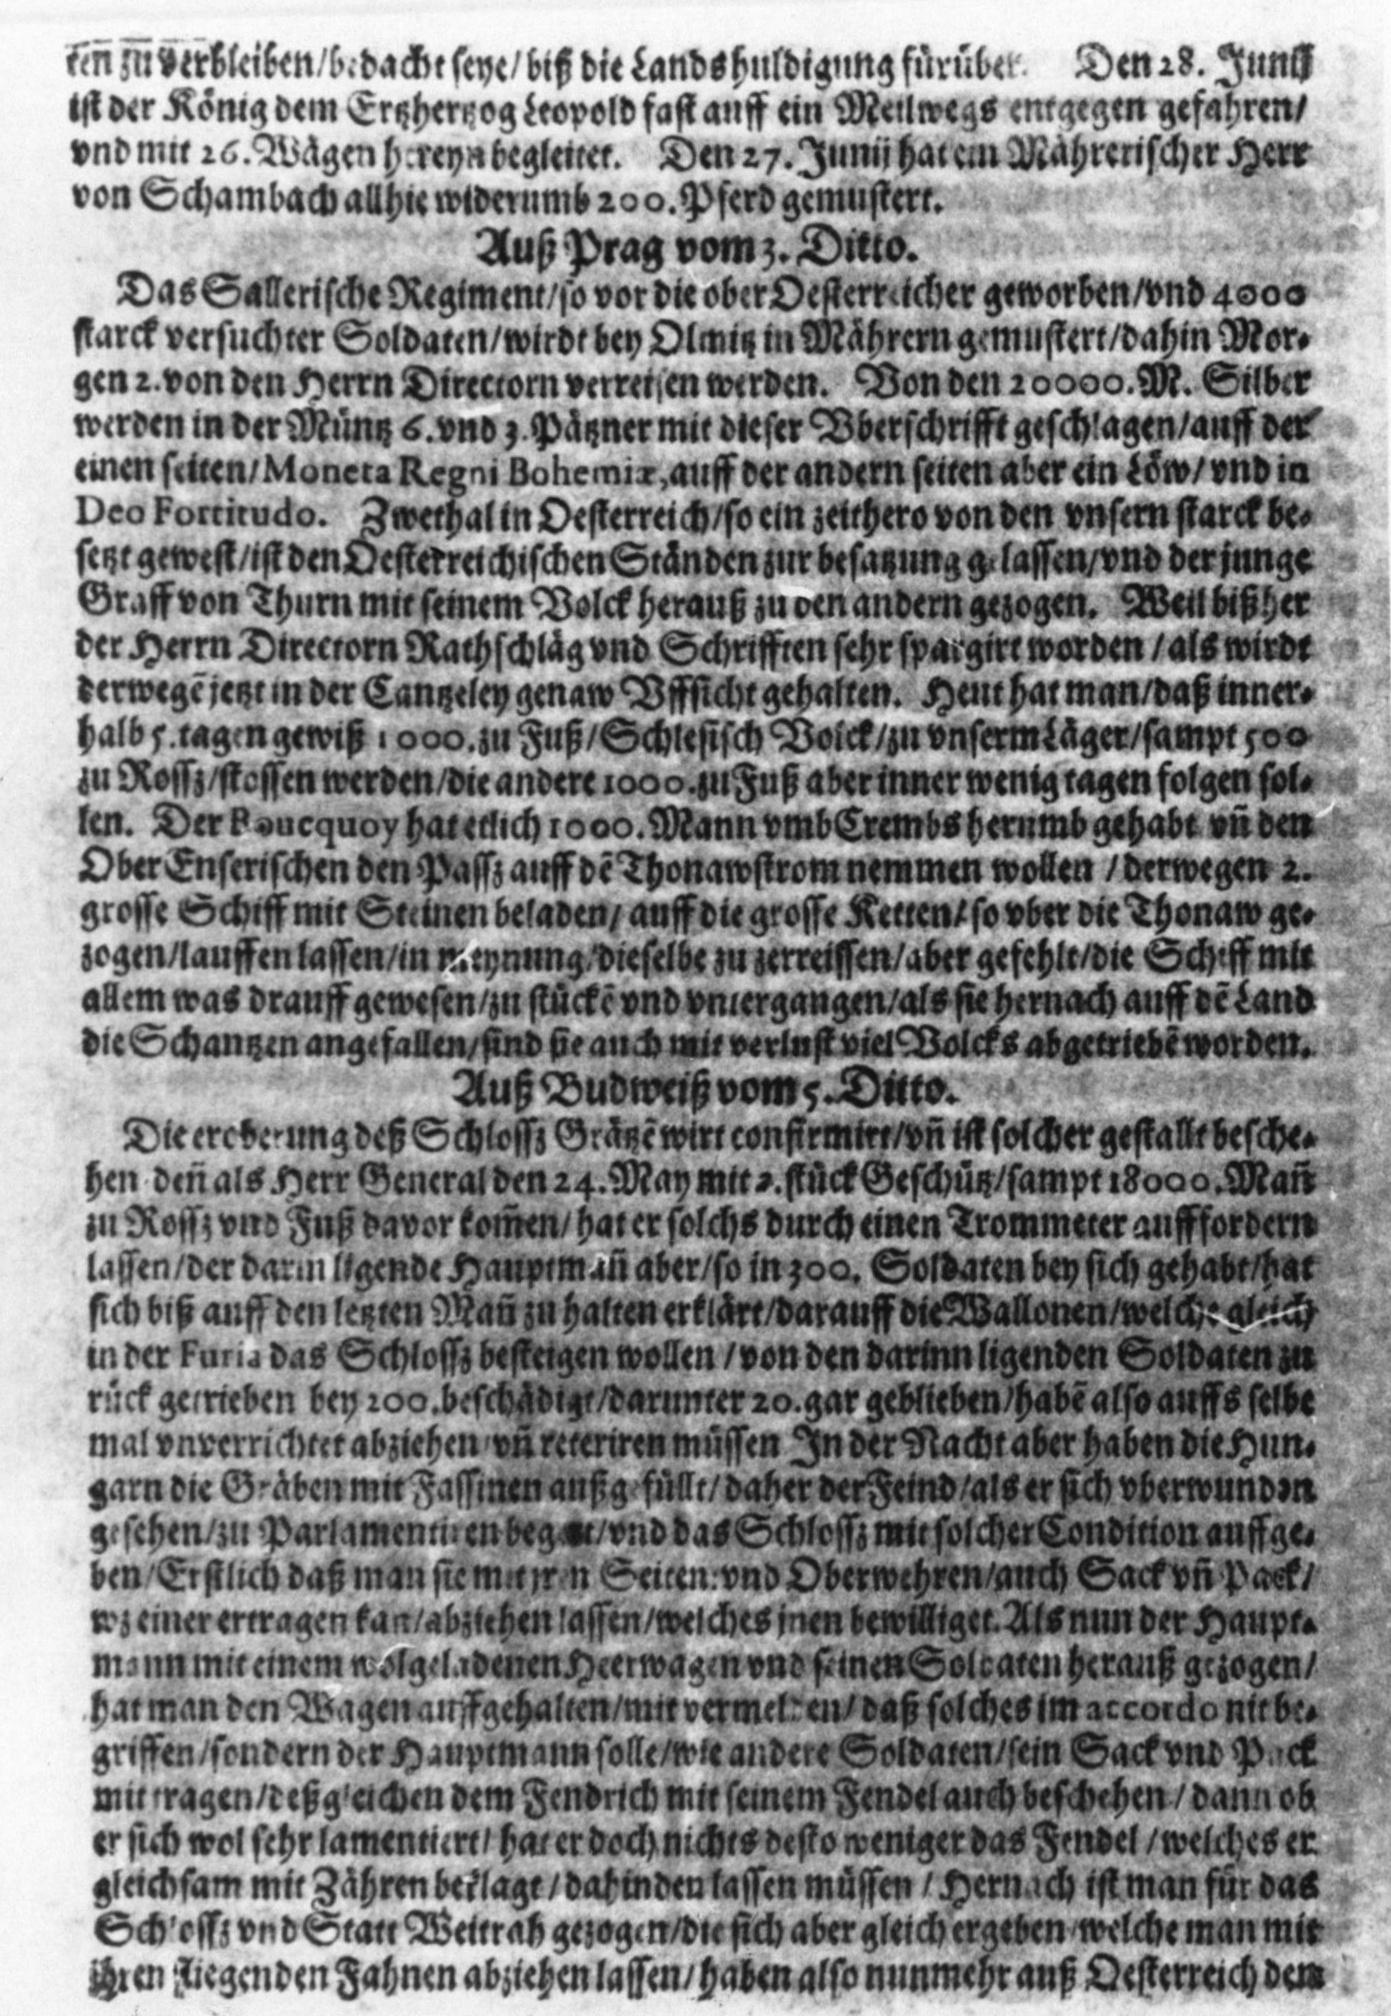 ten zu verbleiben/bedacht seye/ biß die Landshuldigung fürüber. Den 28. Junij
ist der König dem Ertzhertzog Leopold fast auff ein Meilwegs entgegen gefahren/
vnd mit 26. Wägen hereyn begleitet. Den 27. Junij hat ein Mährerischer Herr
von Schambach allhie widerumb 200. Pferd gemustert.
Auß Prag vom 3. Ditto.
Das Sallerische Regiment/so vor die ober Oesterreicher geworben/vnd 4000
starck versuchter Soldaten/wirdt bey Olmitz in Mährern gemustert/dahin Mor-
gen 2. von den Herrn Directorn verreisen werden. Von den 20000. M. Silber
werden in der Müntz 6. vnd 3. Pätzner mit dieser Vberschrifft geschlagen/auff der
einen seiten/Moneta Regni Bohemiæ, auff der andern seiten aber ein Löw/ vnd in
Deo Fortitudo. Zwethal in Oesterreich/so ein zeithero von den vnsern starck be-
setzt gewest/ist den Oesterreichischen Ständen zur besatzung gelassen/vnd der junge
Graff von Thurn mit seinem Volck herauß zu den andern gezogen. Weil bißher
der Herrn Directorn Rathschläg vnd Schrifften sehr spargirt worden / als wirdt
derwegē jetzt in der Cantzeley genaw Vffsicht gehalten. Heut hat man/daß inner-
halb 5. tagen gewiß 1000. zu Fuß/Schlesisch Volck/zu vnserm Läger/sampt 500
zu Rossz/stossen werden/die andere 1000. zu Fuß aber inner wenig tagen folgen sol-
len. Der Boucquoy hat etlich 1000. Mann vmb Crembs herumb gehabt vñ den
Ober Enserischen den Passz auff dē Thonawstrom nemmen wollen / derwegen 2.
grosse Schiff mit Steinen beladen/ auff die grosse Ketten/ so vber die Thonaw ge-
zogen/lauffen lassen/in meynung/dieselbe zu zerreissen/aber gefehlt/die Schiff mit
allem was drauff gewesen/zu stückē vnd vntergangen/als sie hernach auff dē Land
die Schantzen angefallen/sind sie auch mit verlust viel Volcks abgetriebē worden.
Auß Budweiß vom 5. Ditto.
Die eroberung deß Schlossz Grätzē wirt confirmirt/vñ ist solcher gestallt besche-
hen deñ als Herr General den 24. May mit 2. stück Geschütz/sampt 18000. Mañ
zu Rossz vnd Fuß davor kom̄en/ hat er solchs durch einen Trommeter auffordern
lassen/der darin ligende Hauptmañ aber/so in 300. Soldaten bey sich gehabt/hat
sich biß auff den letzten Mañ zu halten erklärt/darauff die Wallonen/welche gleich
in der Furia das Schlossz besteigen wollen / von den darinn ligenden Soldaten zu
rück getrieben bey 200. beschädigt/darunter 20. gar geblieben/habē also auffs selbe
mal vnverrichtet abziehen vñ reteriren müssen In der Nacht aber haben die Hun-
garn die Gräben mit Fassinen außgefüllt/ daher der Feind/als er sich vberwunden
gesehen/zu Parlamentiren begert/vnd das Schlossz mit solcher Condition auffge-
ben/Erstlich daß man sie mit jren Seiten vnd Oberwehren/auch Sack vñ Pack/
wz einer ertragen kan/abziehen lassen/welches jnen bewilliget. Als nun der Haupt-
mann mit einem wolgeladenen Heerwagen vnd seinen Soldaten herauß gezogen/
hat man den Wagen auffgehalten/mit vermelden/ daß solches im accordo nit be-
griffen/sondern der Hauptmann solle/wie andere Soldaten/sein Sack vnd Pack
mit tragen/deßgleichen dem Fendrich mit seinem Fendel auch beschehen / dann ob
er sich wol sehr lamentiert/ hat er doch nichts desto weniger das Fendel /welches er
gleichsam mit Zähren beklagt / dahinden lassen müssen / Hernach ist man für das
Schlossz vnd Statt Weitrah gezogen/die sich aber gleich ergeben welche man mit
ihren fliegenden Fahnen abziehen lassen/ haben also nunmehr auß Oesterreich den